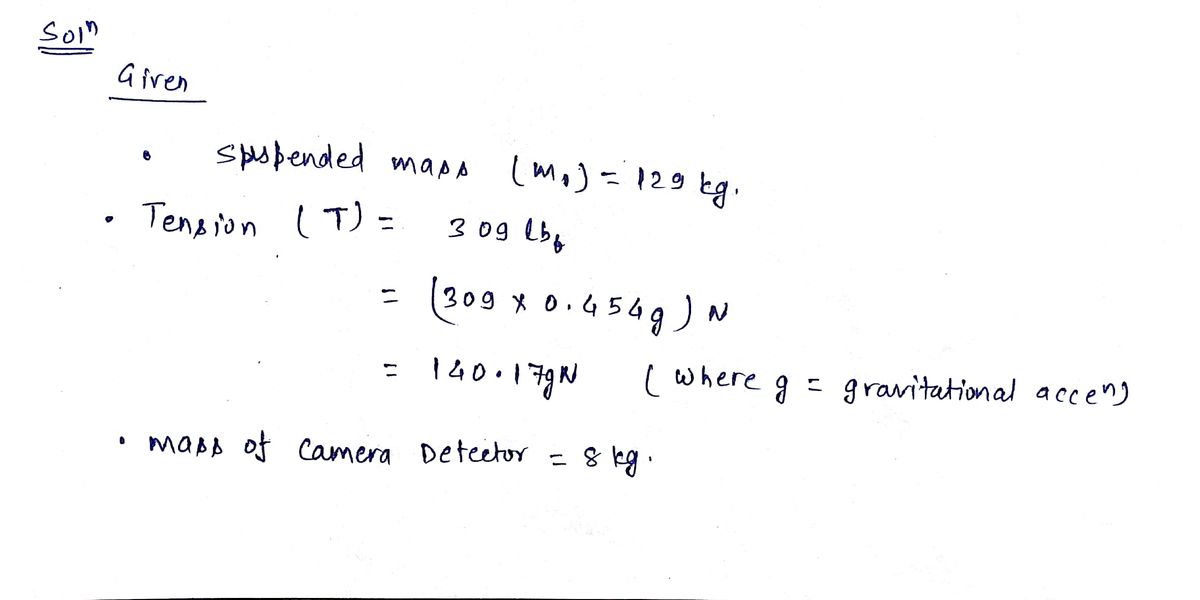 Solⁿ
Given
• Suspended mass (m₁) = 129 kg.
• Tension (T) = 309 lbf
= (309 × 0.454g) N
= 140.17gN (where g = gravitational accⁿ)
• mass of Camera Detector = 8 kg.